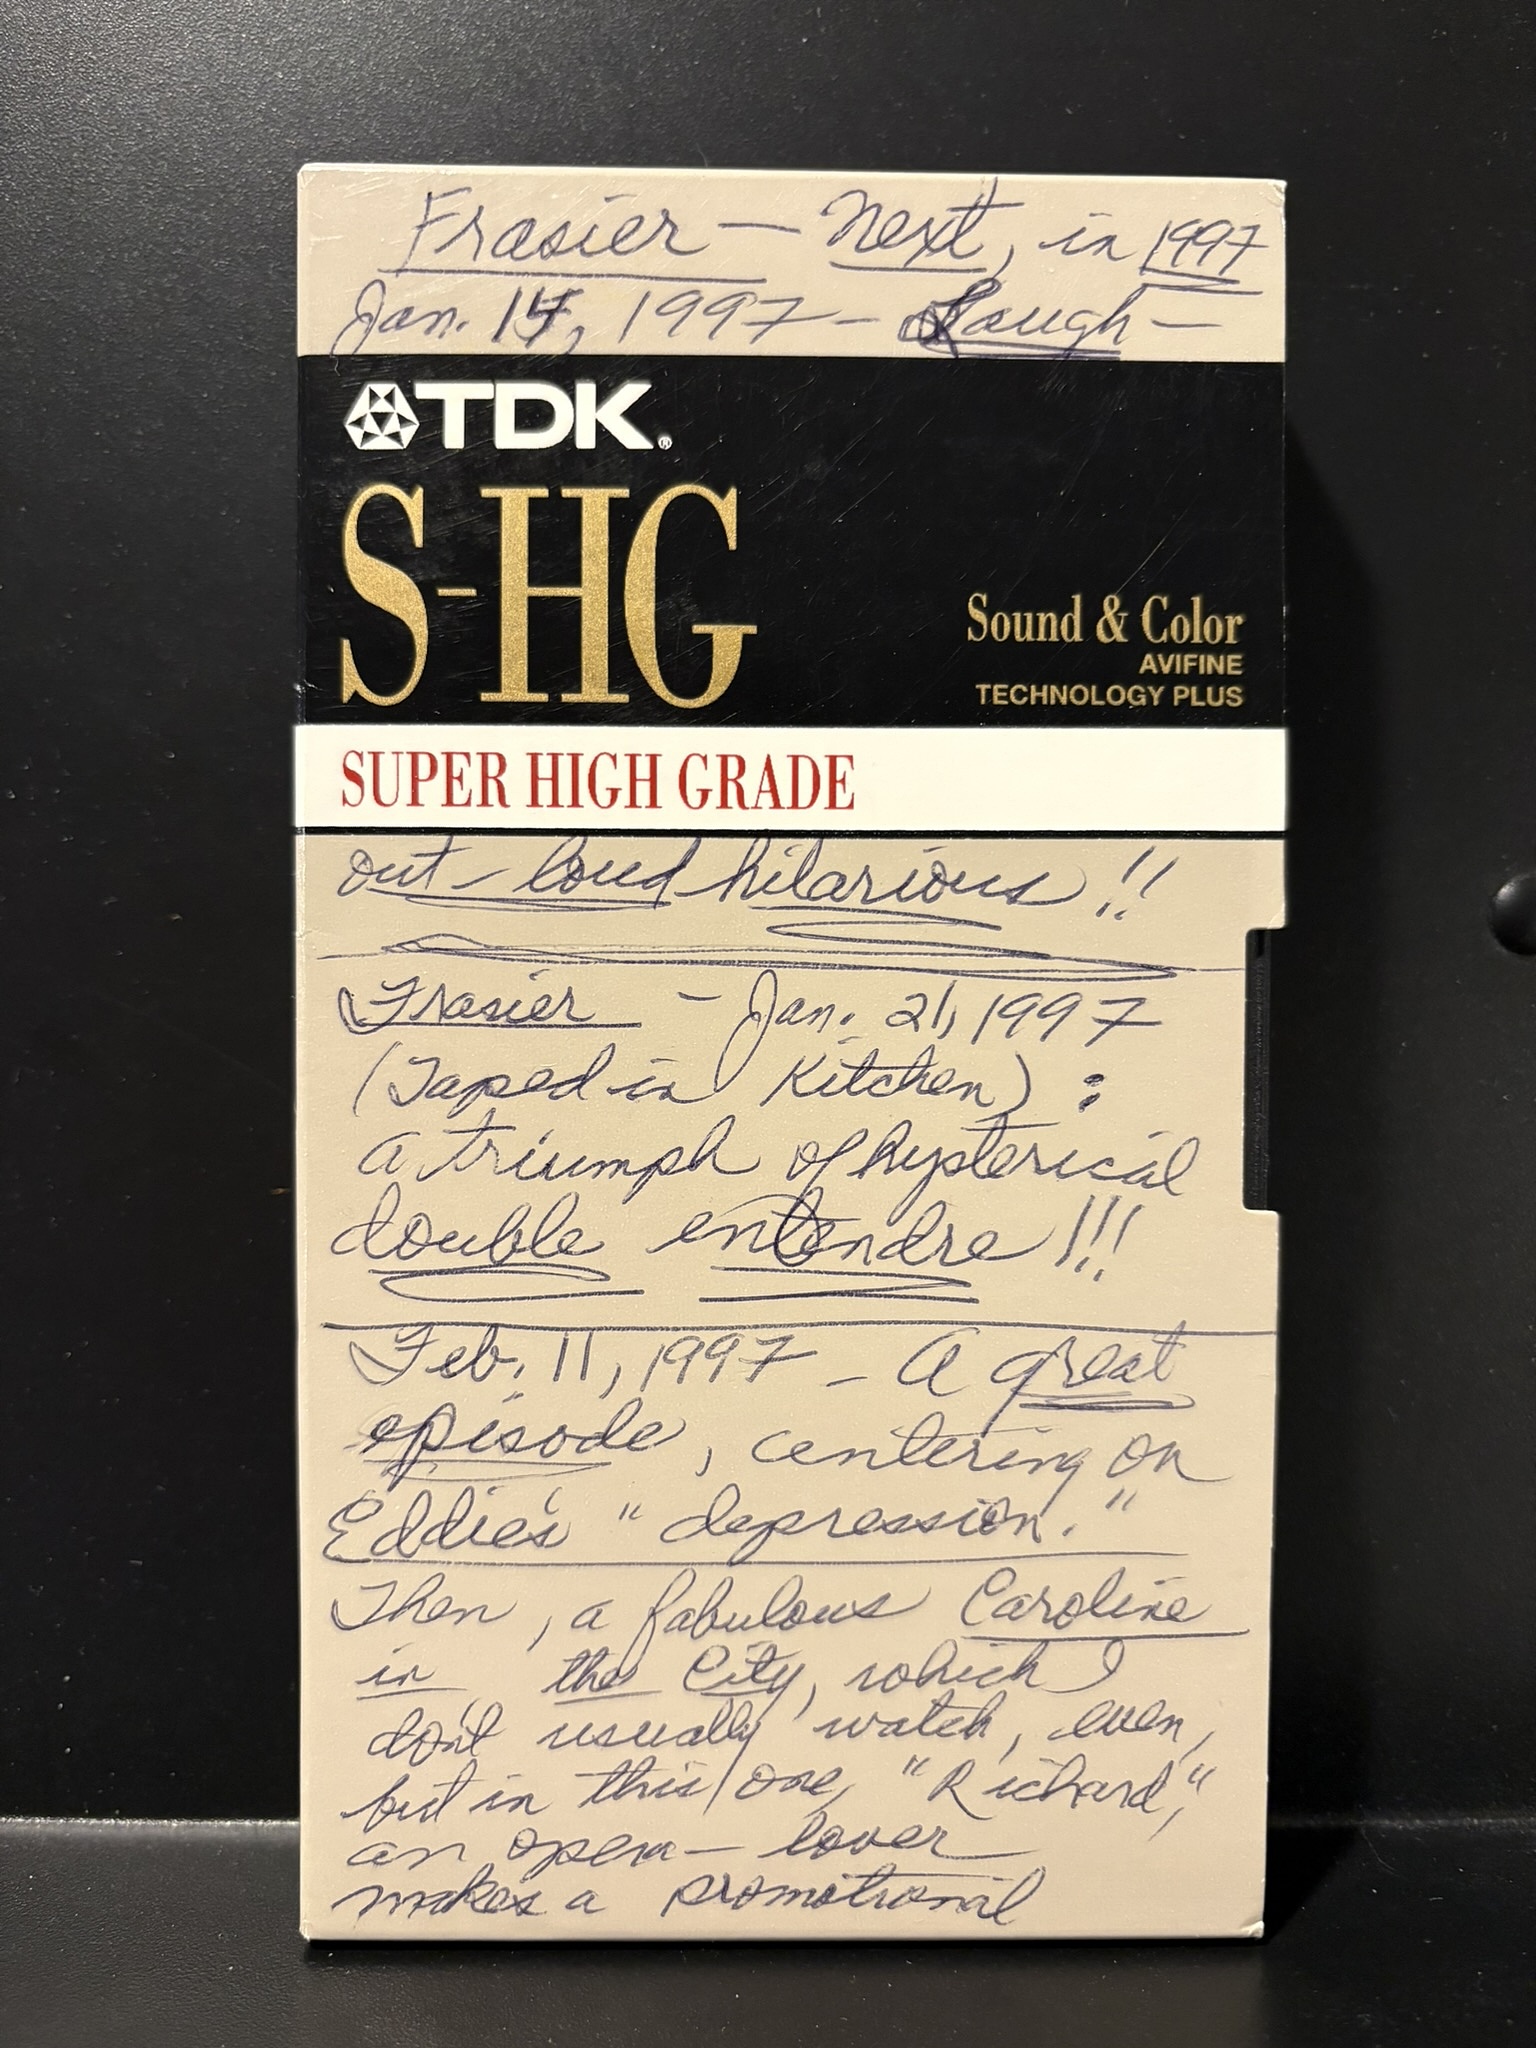 Frasier — Next, in 1997
Jan. 14, 1997 - Laugh -
TDK®
S-HG
Sound & Color
AVIFINE
TECHNOLOGY PLUS
SUPER HIGH GRADE
out-loud hilarious!!
Frasier - Jan. 21, 1997
(Taped in Kitchen):
a triumph of hysterical
double entendre!!!
Feb. 11, 1997 - A great
episode, centering on
Eddie's "depression."
Then, a fabulous Caroline
in the City, which I
don't usually watch, even,
but in this one, "Richard,"
an opera-lover
makes a promotional